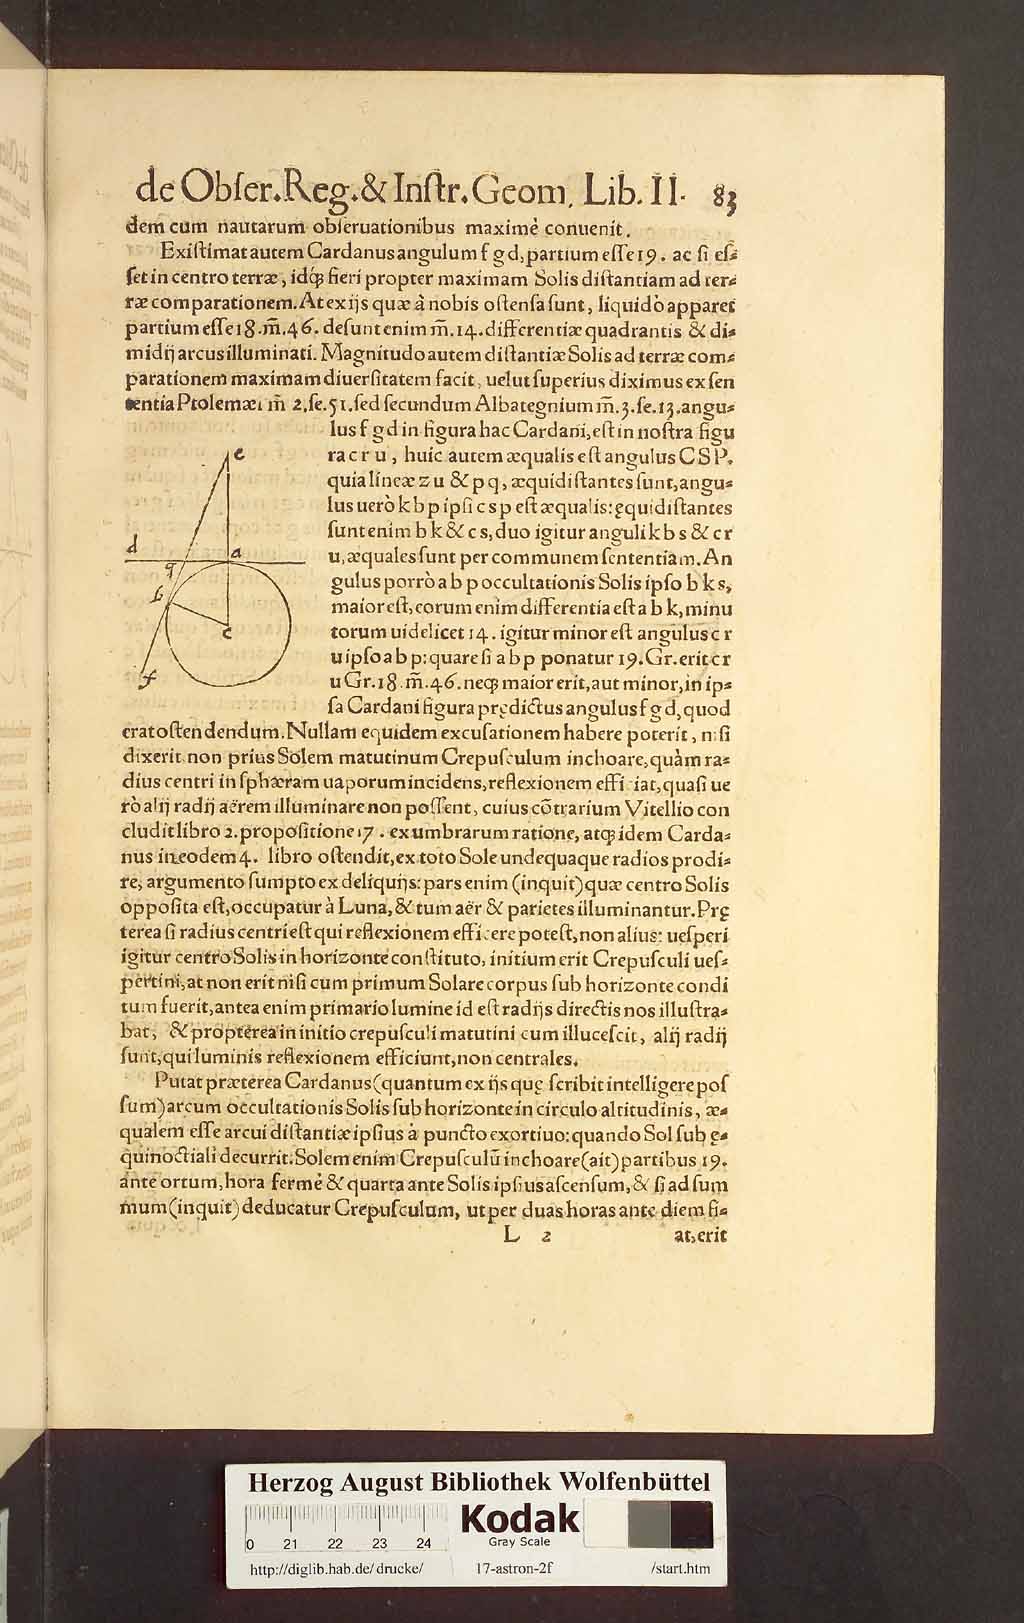 de Obſer.Reg.& Inſtr.Geom. Lib.II. 83
dem cum nautarum obſeruationibus maximè conuenit.
Exiſtimat autem Cardanus angulum f g d, partium eſſe 19. ac ſi eſ⸗
ſet in centro terræ, idq́; fieri propter maximam Solis diſtantiam ad ter⸗
ræ comparationem. At ex ijs quæ à nobis oſtenſa ſunt, liquidò apparet
partium eſſe 18. m̄. 46. deſunt enim m̄. 14. differentiæ quadrantis & di⸗
midij arcus illuminati. Magnitudo autem diſtantiæ Solis ad terræ com⸗
parationem maximam diuerſitatem facit, uelut ſuperius diximus ex ſen
tentia Ptolemæi m̄ 2. ſe. 51. ſed ſecundum Albategnium m̄. 3. ſe. 13. angu⸗
lus f g d in figura hac Cardani, eſt in noſtra figu
ra c r u, huic autem æqualis eſt angulus C S P.
quia lineæ z u & p q, æquidiſtantes ſunt, angu⸗
lus uerò k b p ipſi c s p eſt æqualis: ęquidiſtantes
ſunt enim b k & c s, duo igitur anguli k b s & c r
u, æquales ſunt per communem ſententiam. An
gulus porrò a b p occultationis Solis ipſo b k s,
maior eſt, eorum enim differentia eſt a b k, minu
torum uidelicet 14. igitur minor eſt angulus c r
u ipſo a b p: quare ſi a b p ponatur 19. Gr. erit c r
u Gr. 18. m̄. 46. neq; maior erit, aut minor, in ip⸗
ſa Cardani figura prędictus angulus f g d, quod
erat oſtendendum. Nullam equidem excuſationem habere poterit, niſi
dixerit non prius Solem matutinum Crepuſculum inchoare, quàm ra⸗
dius centri in ſphæram uaporum incidens, reflexionem efficiat, quaſi ue
rò alij radij aërem illuminare non poſſent, cuius cōtrarium Vitellio con
cludit libro 2. propoſitione 17. ex umbrarum ratione, atq; idem Carda⸗
nus in eodem 4. libro oſtendit, ex toto Sole undequaque radios prodi⸗
re, argumento ſumpto ex deliquijs: pars enim (inquit) quæ centro Solis
oppoſita eſt, occupatur à Luna, & tum aër & parietes illuminantur. Prę
terea ſi radius centri eſt qui reflexionem efficere poteſt, non alius: ueſperi
igitur centro Solis in horizonte conſtituto, initium erit Crepuſculi ueſ⸗
pertini, at non erit niſi cum primum Solare corpus ſub horizonte condi
tum fuerit, antea enim primario lumine id eſt radijs directis nos illuſtra⸗
bat, & propterea in initio crepuſculi matutini cum illuceſcit, alij radij
ſunt, qui luminis reflexionem efficiunt, non centrales.
Putat præterea Cardanus (quantum ex ijs quę ſcribit intelligere poſ
ſum) arcum occultationis Solis ſub horizonte in circulo altitudinis, æ⸗
qualem eſſe arcui diſtantiæ ipſius à puncto exortiuo: quando Sol ſub ę⸗
quinoctiali decurrit. Solem enim Crepuſculū inchoare (ait) partibus 19.
ante ortum, hora fermè & quarta ante Solis ipſius aſcenſum, & ſi ad ſum
mum (inquit) deducatur Crepuſculum, ut per duas horas ante diem fi⸗
L 2 at, erit
e
d a
g
b
c
f
Herzog August Bibliothek Wolfenbüttel
0 21 22 23 24
Kodak
Gray Scale
http://diglib.hab.de/drucke/ 17-astron-2f /start.htm